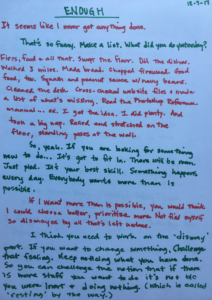 12-9-17
ENOUGH
It seems like I never get anything done.
That's so funny. Make a list. What did you do yesterday?
First, food & all that. Swept the floor. Did the dishes.
Washed 3 mixes. Made bread. Chopped firewood. Good
food, too. Squash and peanut sauce w/ many beans.
Cleaned the desk. Cross-checked website files & made
a list of what's missing. Read the Photoshop Reference
manual... ok, I get the idea. I did plenty. And
took a big nap. Rested and stretched on the
floor, standing poses at the wall.
So, yeah. If you are looking for something
new to do... It's got to fit in. There will be room.
Just yes. It's your best skill. Something happens
every day. Everybody wants more than is
possible.
If I want more than is possible, you would think
I could choose better, prioritize more. Not find myself
so dismayed by all that's left undone.
I think you need to work on the "dismay"
part. If you want to change something, challenge
that feeling. Keep noticing what you have done.
So you can challenge the notion that if there
is more stuff you want to do it's not b/c
you were inert & doing nothing. (which is called
"resting" by the way.)